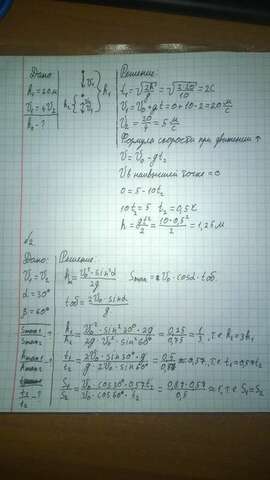 Дано:
h₁ = 20м
V₁ = 4V₂
h₂ - ?
Решение:
t₁ = √(2h/g) = √(2·20/10) = 2С
V₁ = V₀ + gt = 0 + 10·2 = 20 м/с
V₂ = 20/4 = 5 м/с
Формула скорости при движении ↑
V = V₀ - gt₂
V в наивысшей точке = 0
0 = 5 - 10t₂
10t₂ = 5 t₂ = 0,5с
h = gt²/2 = 10·0,5²/2 = 1,25м
№2
Дано:
V₁ = V₂
α = 30°
β = 60°
Решение:
hм = V₀²·sin²α/2g Smax = V₀·cosα·tоб.
tоб = 2V₀·sinα/g
h₁/h₂ = V₀²·sin²30°·2g/2g·V₀²·sin²60° = 0,25/0,75 = 1/3, т.е h₂ = 3h₁
t₁/t₂ = 2V₀·sin30°·g/g·2V₀·sin60° = 0,57, т.е t₁ = 0,57t₂
S₁/S₂ = V₀·cos30°·0,57t₂/V₀·cos60°·t₂ = 0,87·0,57/0,5 ≈ 1, т.е S₁ = S₂